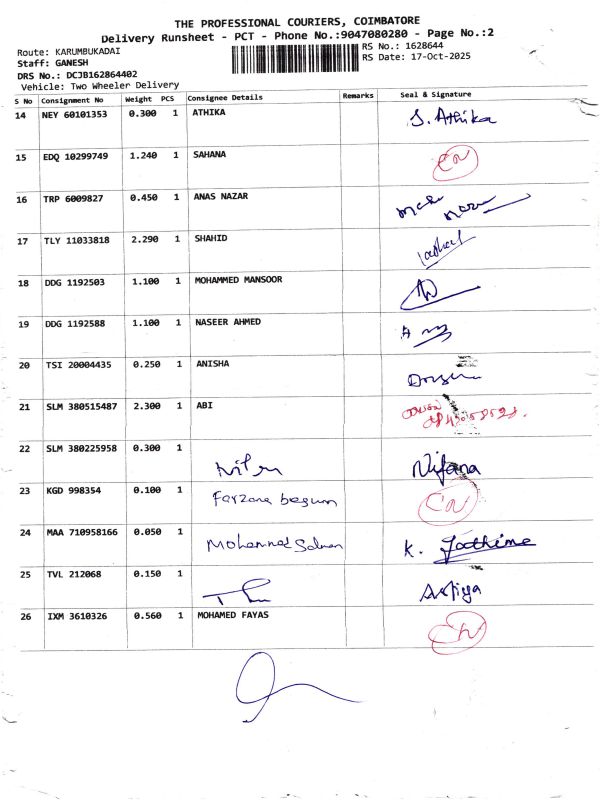 THE PROFESSIONAL COURIERS, COIMBATORE
Delivery Runsheet - PCT - Phone No.:9047080280 - Page No.:2
Route: KARUMBUKADAI RS No.: 1628644
Staff: GANESH RS Date: 17-Oct-2025
DRS No.: DCJB162864402
Vehicle: Two Wheeler Delivery
S No Consignment No Weight PCS Consignee Details Remarks Seal & Signature
14 NEY 60101353 0.300 1 ATHIKA S. Athika
15 EDQ 10299749 1.240 1 SAHANA CN
16 TRP 6009827 0.450 1 ANAS NAZAR
17 TLY 11033818 2.290 1 SHAHID
18 DDG 1192503 1.100 1 MOHAMMED MANSOOR
19 DDG 1192588 1.100 1 NASEER AHMED
20 TSI 20004435 0.250 1 ANISHA
21 SLM 380515487 2.300 1 ABI
22 SLM 380225958 0.300 1 Nifana
23 KGD 998354 0.100 1 Farzana begum CN
24 MAA 710958166 0.050 1 Mohammed Salman K. Fathima
25 TVL 212068 0.150 1
26 IXM 3610326 0.560 1 MOHAMED FAYAS CN